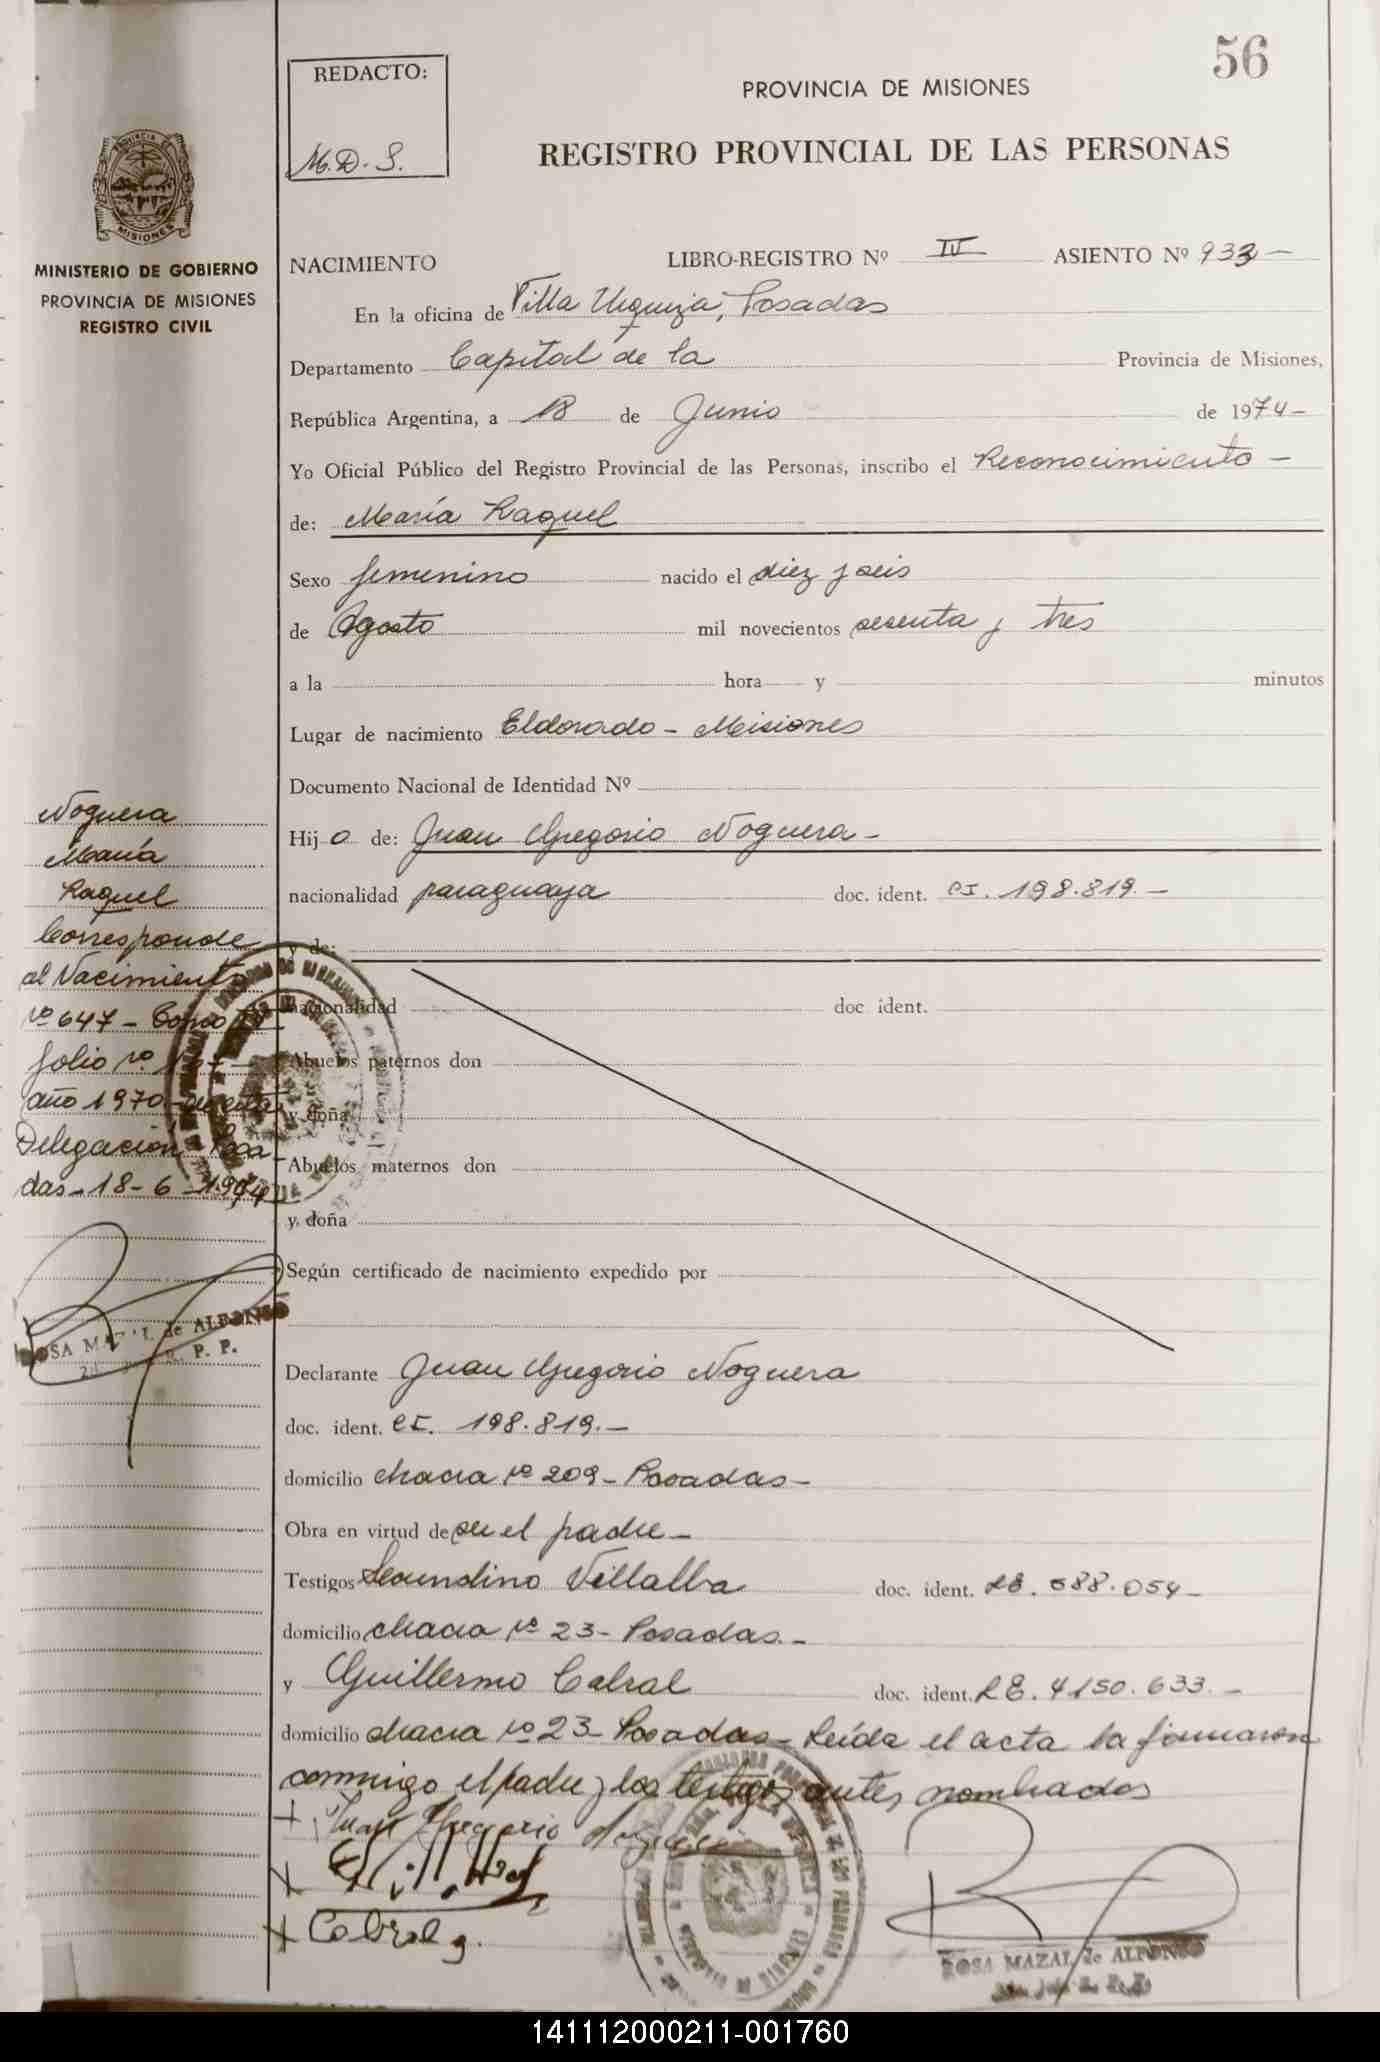 56
REDACTO:
M.D.S.
PROVINCIA DE MISIONES
REGISTRO PROVINCIAL DE LAS PERSONAS
PROVINCIA DE
MISIONES
MINISTERIO DE GOBIERNO
PROVINCIA DE MISIONES
REGISTRO CIVIL
NACIMIENTO LIBRO-REGISTRO Nº IV ASIENTO Nº 933 —
En la oficina de Villa Urquiza, Posadas
Departamento Capital de la Provincia de Misiones,
República Argentina, a 18 de Junio de 1974-
Yo Oficial Público del Registro Provincial de las Personas, inscribo el Reconocimiento -
de: María Raquel
Sexo femenino nacido el diez y seis
de Agosto mil novecientos sesenta y tres
a la hora y minutos
Lugar de nacimiento Eldorado - Misiones
Documento Nacional de Identidad Nº
Hij a de: Juan Gregorio Noguera -
nacionalidad paraguaya doc. ident. CI. 198.819. —
y de:
nacionalidad doc ident.
Abuelos paternos don
y doña
Abuelos maternos don
y doña
Según certificado de nacimiento expedido por
Declarante Juan Gregorio Noguera
doc. ident. CI. 198.819. —
domicilio chacra Nº 209 - Posadas -
Obra en virtud de ser el padre -
Testigos Secundino Villalba doc. ident. LE. 688.054 -
domicilio chacra Nº 23 - Posadas. -
y Guillermo Cabral doc. ident. LE. 4150.633. -
domicilio chacra Nº 23 - Posadas - Leída el acta la firmaron
conmigo el padre y los testigos antes nombrados
+ Juan Gregorio Noguera
+ Cabral g.
ROSA MAZAL de ALFONSO
Noguera
María
Raquel
Corresponde
al Nacimiento
Nº 647 - Tomo
folio Nº
año 1970 - de esta
Delegación Posa-
das - 18 - 6 - 1974
ROSA MAZAL de ALFONSO
141112000211-001760